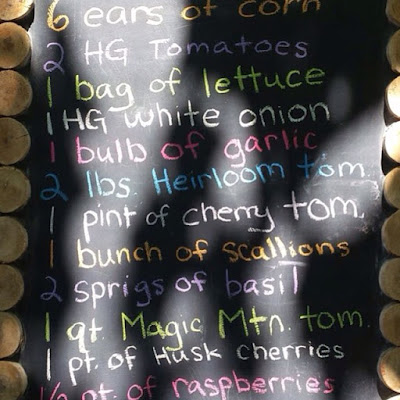 6 ears of corn
2 HG Tomatoes
1 bag of lettuce
1 HG white onion
1 bulb of garlic
2 lbs. Heirloom tom.
1 pint of cherry tom.
1 bunch of scallions
2 sprigs of basil
1 qt. Magic Mtn. tom.
1 pt. of Husk cherries
1/2 pt. of raspberries